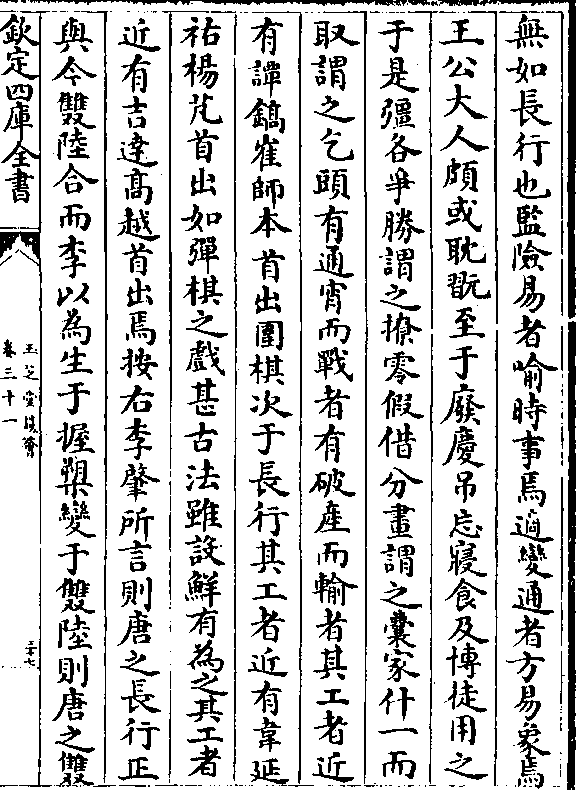 無如長行也監險易者喻時事焉適變通者方易象焉
王公大人頗或耽翫至于廢慶吊忘寢食及博徒用之
于是彊各爭勝謂之撩零假借分畫謂之囊家什一而
取謂之乞頭有通宵而戰者有破產而輸者其工者近
有譚鎬崔師本首出圍棋次于長行其工者近有韋延
祐楊芃首出如彈棋之戲甚古法雖設鮮有為之其工者
近有吉逹高越首出焉按右李肇所言則唐之長行正
與今雙陸合而李以為生于握槊變于雙陸則唐之雙
欽定四庫全書
玉芝堂談薈
卷三十一
二十七